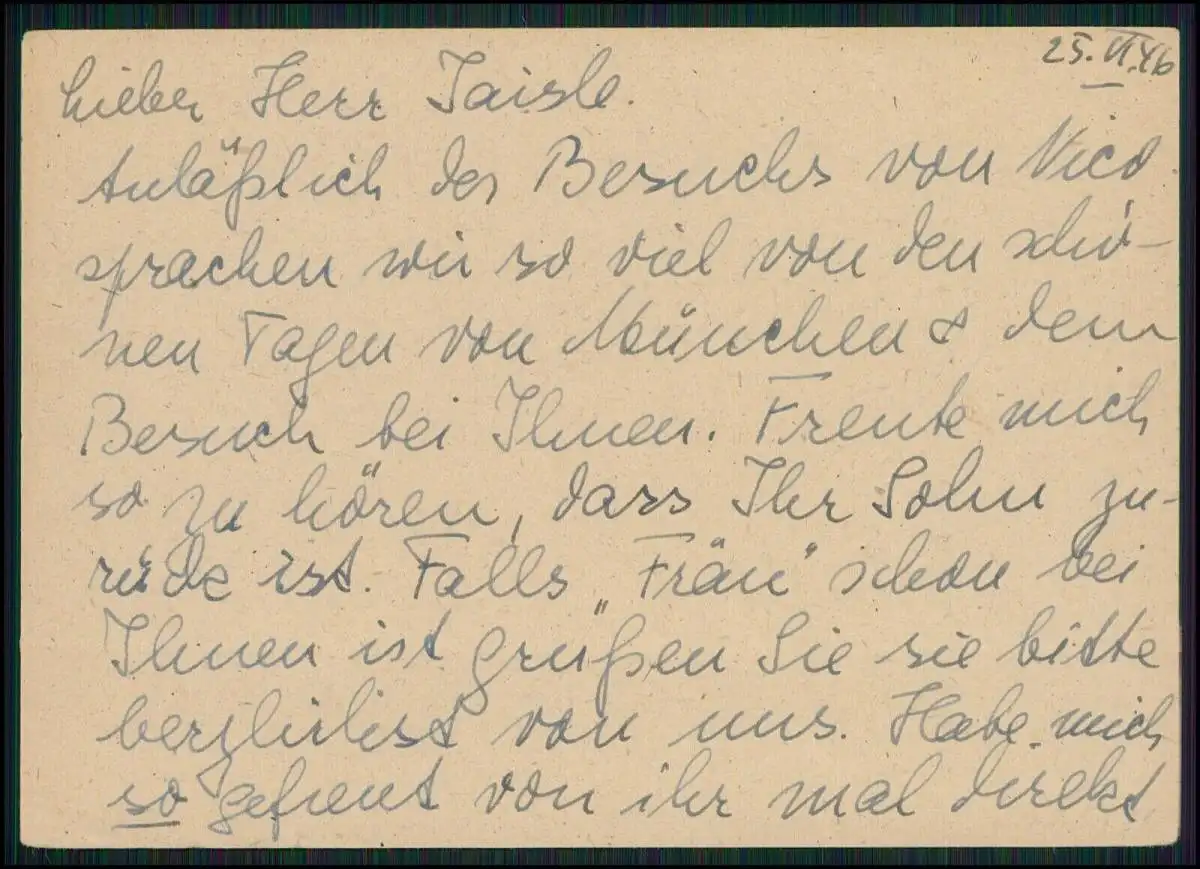 25. VI. 46
Lieber Herr Taisle.
Anläßlich des Besuchs von Nico
sprachen wir so viel von den schö-
nen Tagen von München & dem
Besuch bei Ihnen. Freute mich
so zu hören, dass Ihr Sohn zu-
rück ist. Falls „Frän" schon bei
Ihnen ist grüßen Sie sie bitte
herzlichst von uns. Habe mich
so gefreut von ihr mal direkt